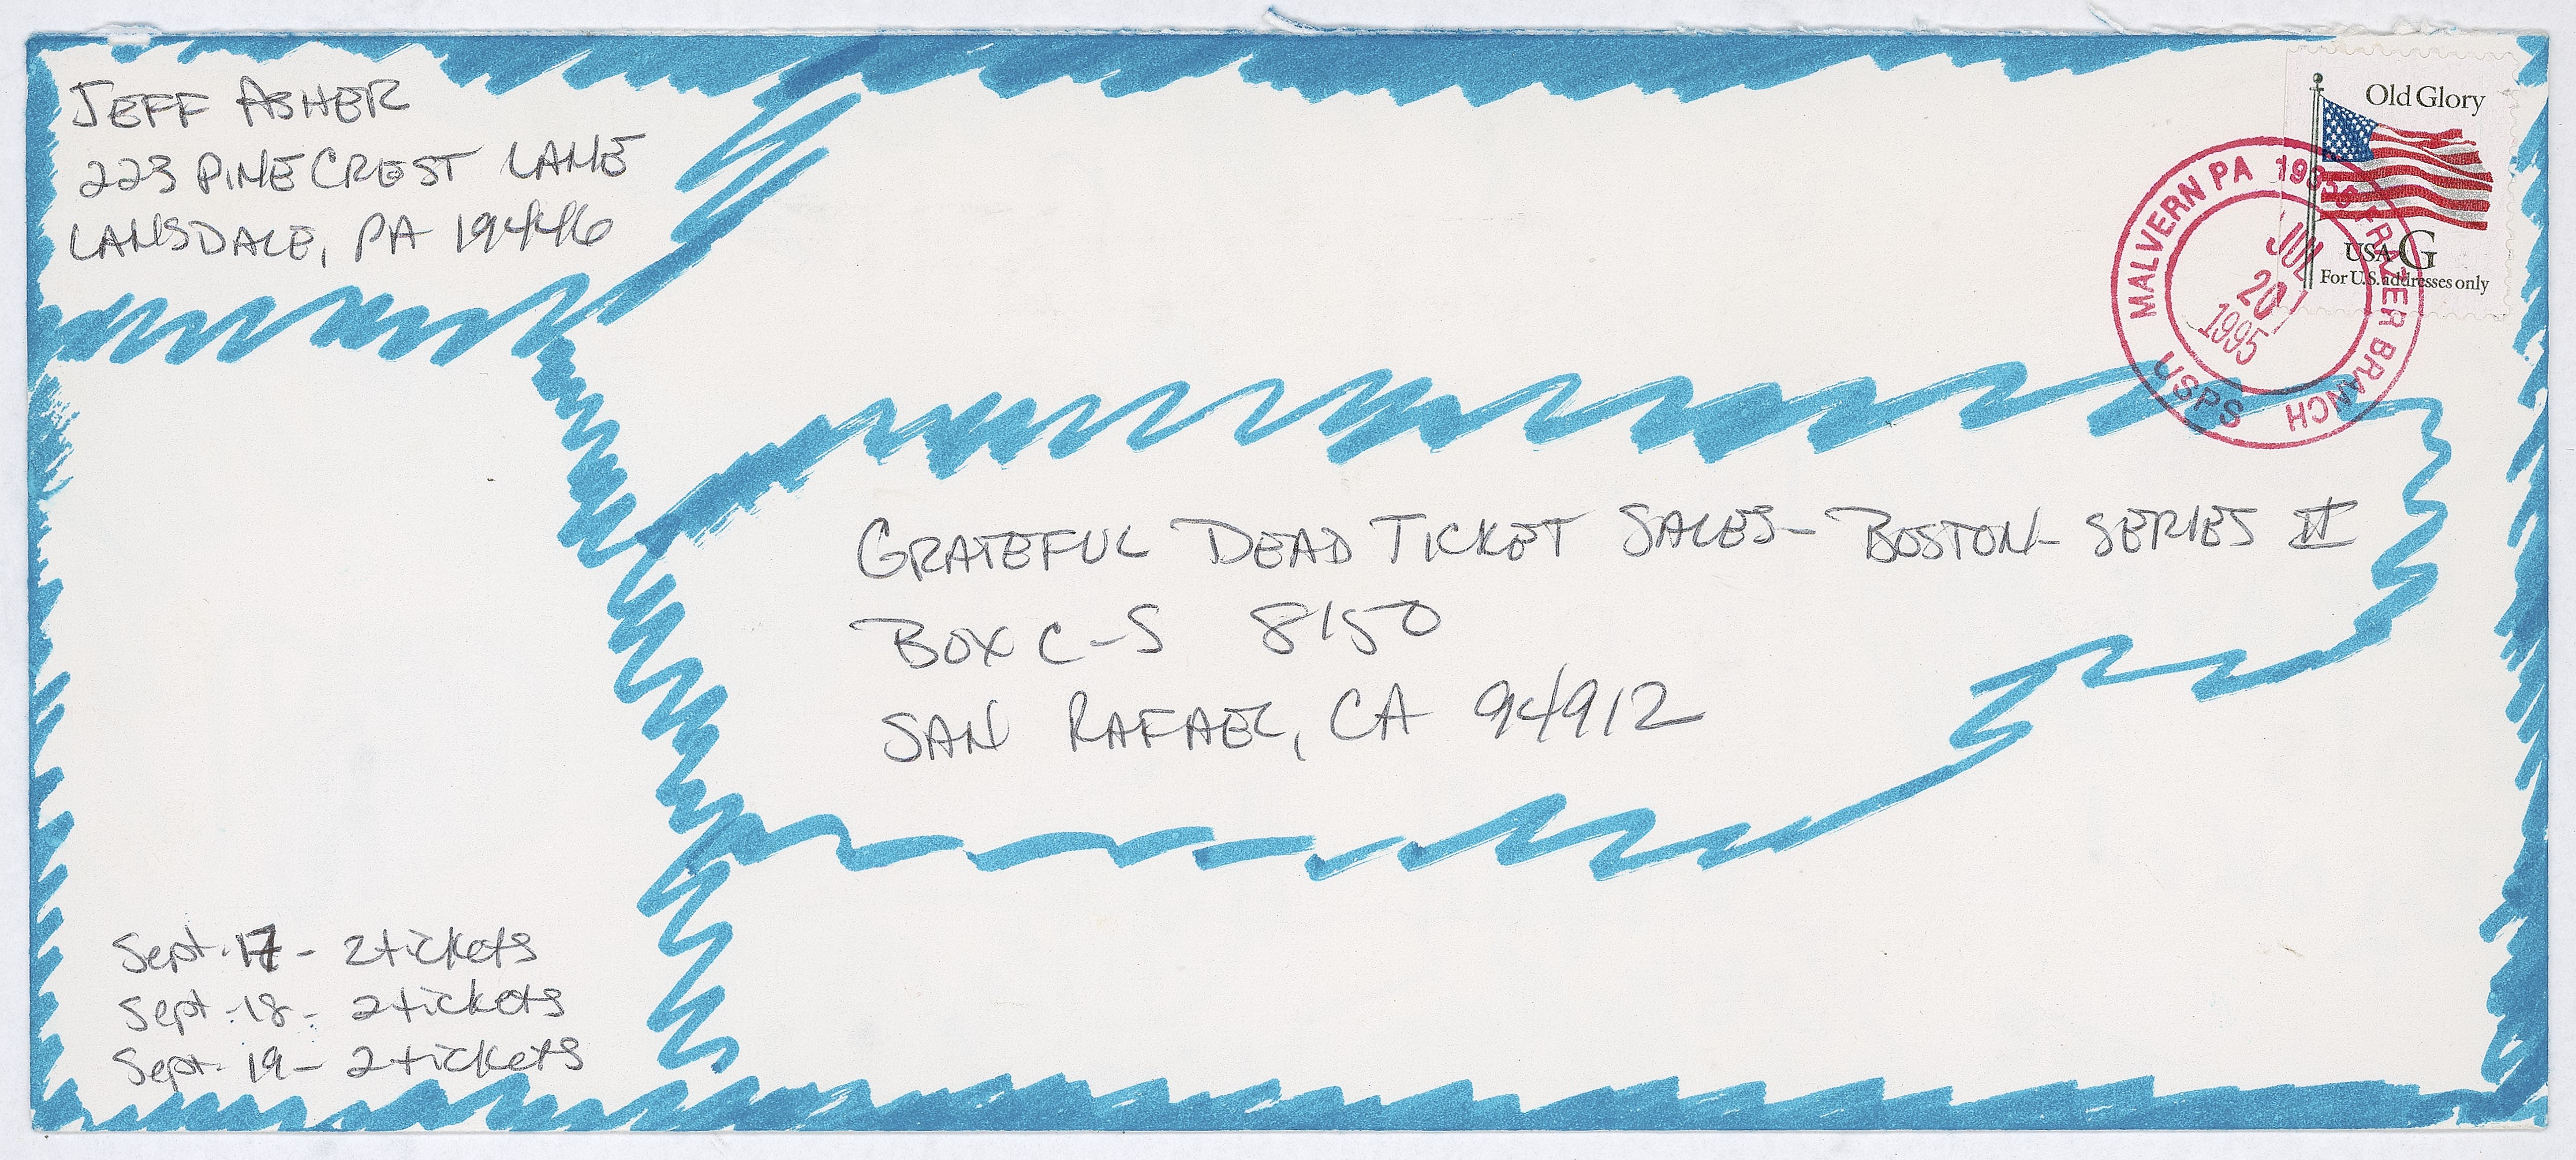 JEFF ASHER
223 PINECREST LANE
LANSDALE, PA 19446
Old Glory
USA G
For U.S. addresses only
MALVERN PA 19355 FRAZER BRANCH
USPS
JUL
20
1995
GRATEFUL DEAD TICKET SALES- BOSTON- SERIES II
BOX C-S 8150
SAN RAFAEL, CA 94912
Sept. 17 - 2 tickets
Sept. 18 - 2 tickets
Sept. 19 - 2 tickets